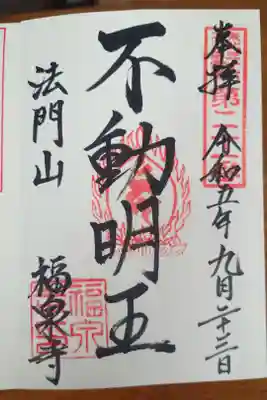 奉拝
令和五年九月二十三日
不動明王
法門山
福泉寺